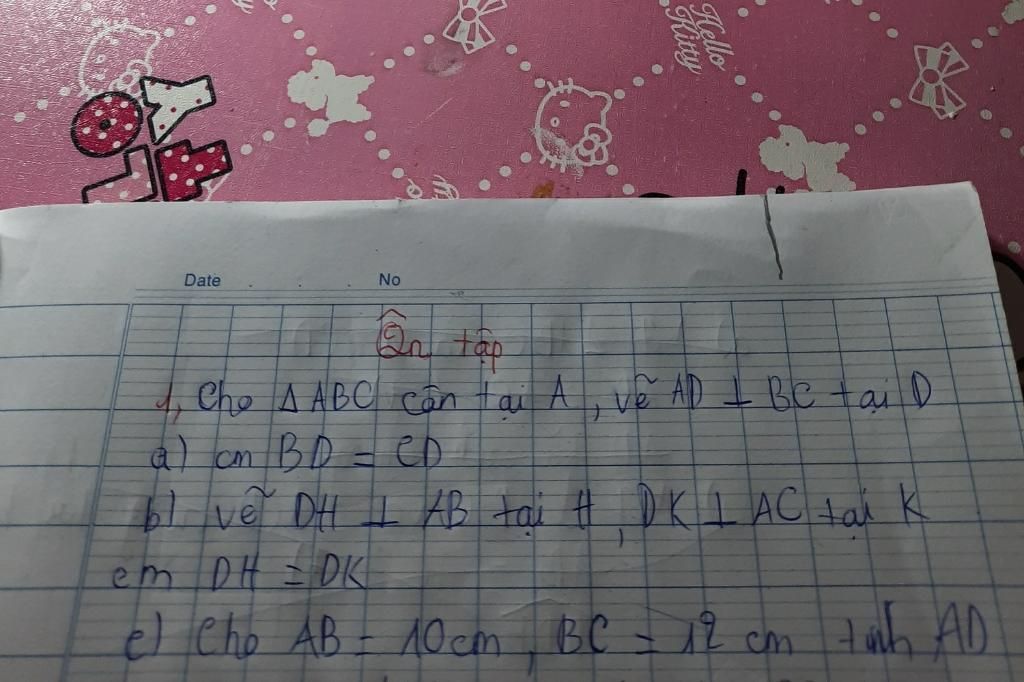 Hello
Kitty
Date . . . No
Ôn tập
1, Cho Δ ABC cân tại A, vẽ AD ⊥ BC tại D
a) cm BD = CD
b) vẽ DH ⊥ AB tại H, DK ⊥ AC tại K
cm DH = DK
c) Cho AB = 10cm, BC = 12 cm tính AD